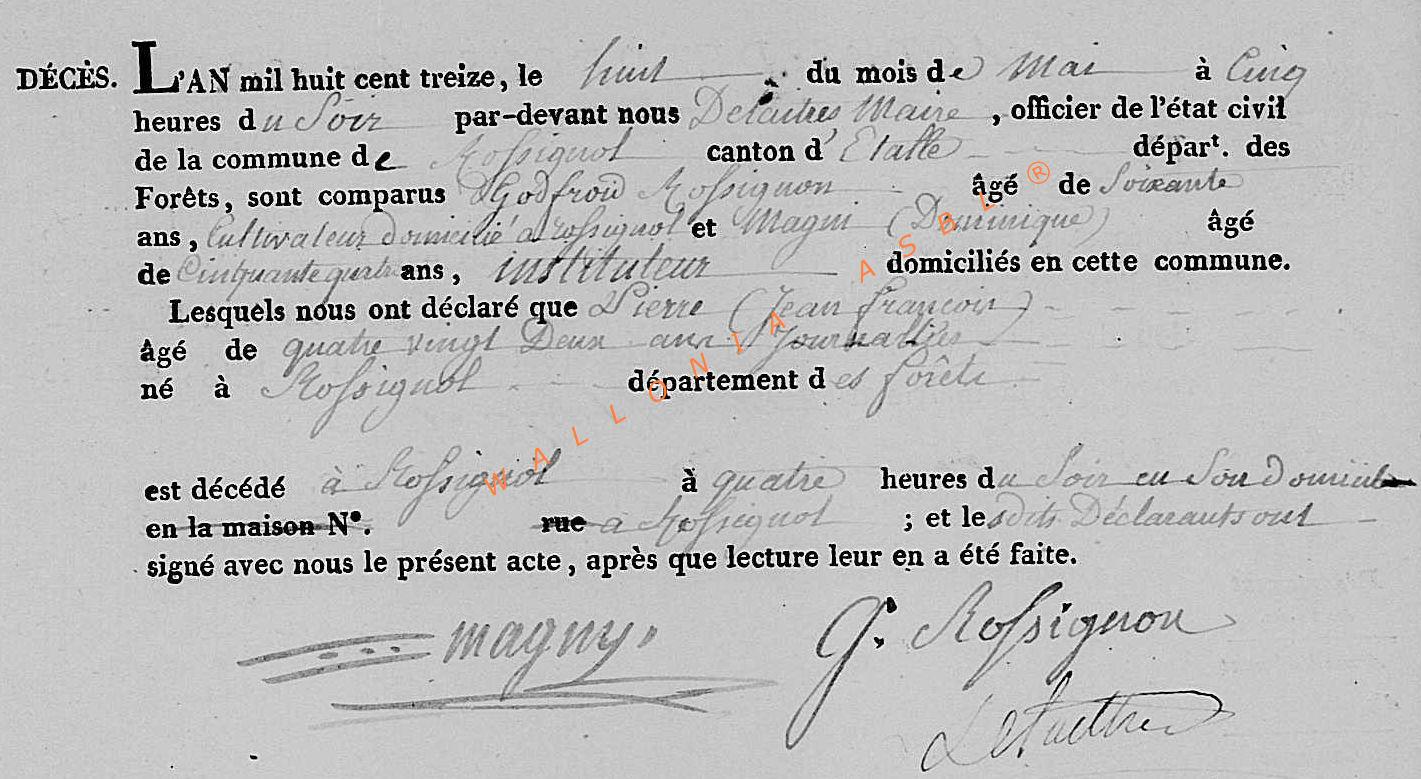 DÉCÈS. L'AN mil huit cent treize, le huit du mois de Mai à Cinq
heures du Soir par-devant nous Maire, officier de l'état civil
de la commune de Rossignol canton d'Etalle départ. des
Forêts, sont comparus Godfroid Rossignon âgé de Soixante
ans, Cultivateur domicilié à Rossignol et Magni (Dominique) âgé
de Cinquante quatre ans, instituteur domiciliés en cette commune.
Lesquels nous ont déclaré que Pierre (Jean françois)
âgé de quatre vingt Deux ans Journallier
né à Rossignol département des forêts
est décédé à Rossignol à quatre heures du Soir en Son Domicile
en la maison N°. rue à Rossignol ; et lesdits Déclarants ont
signé avec nous le présent acte, après que lecture leur en a été faite.
magny G. Rossignon
WALLONIA ASBL ®